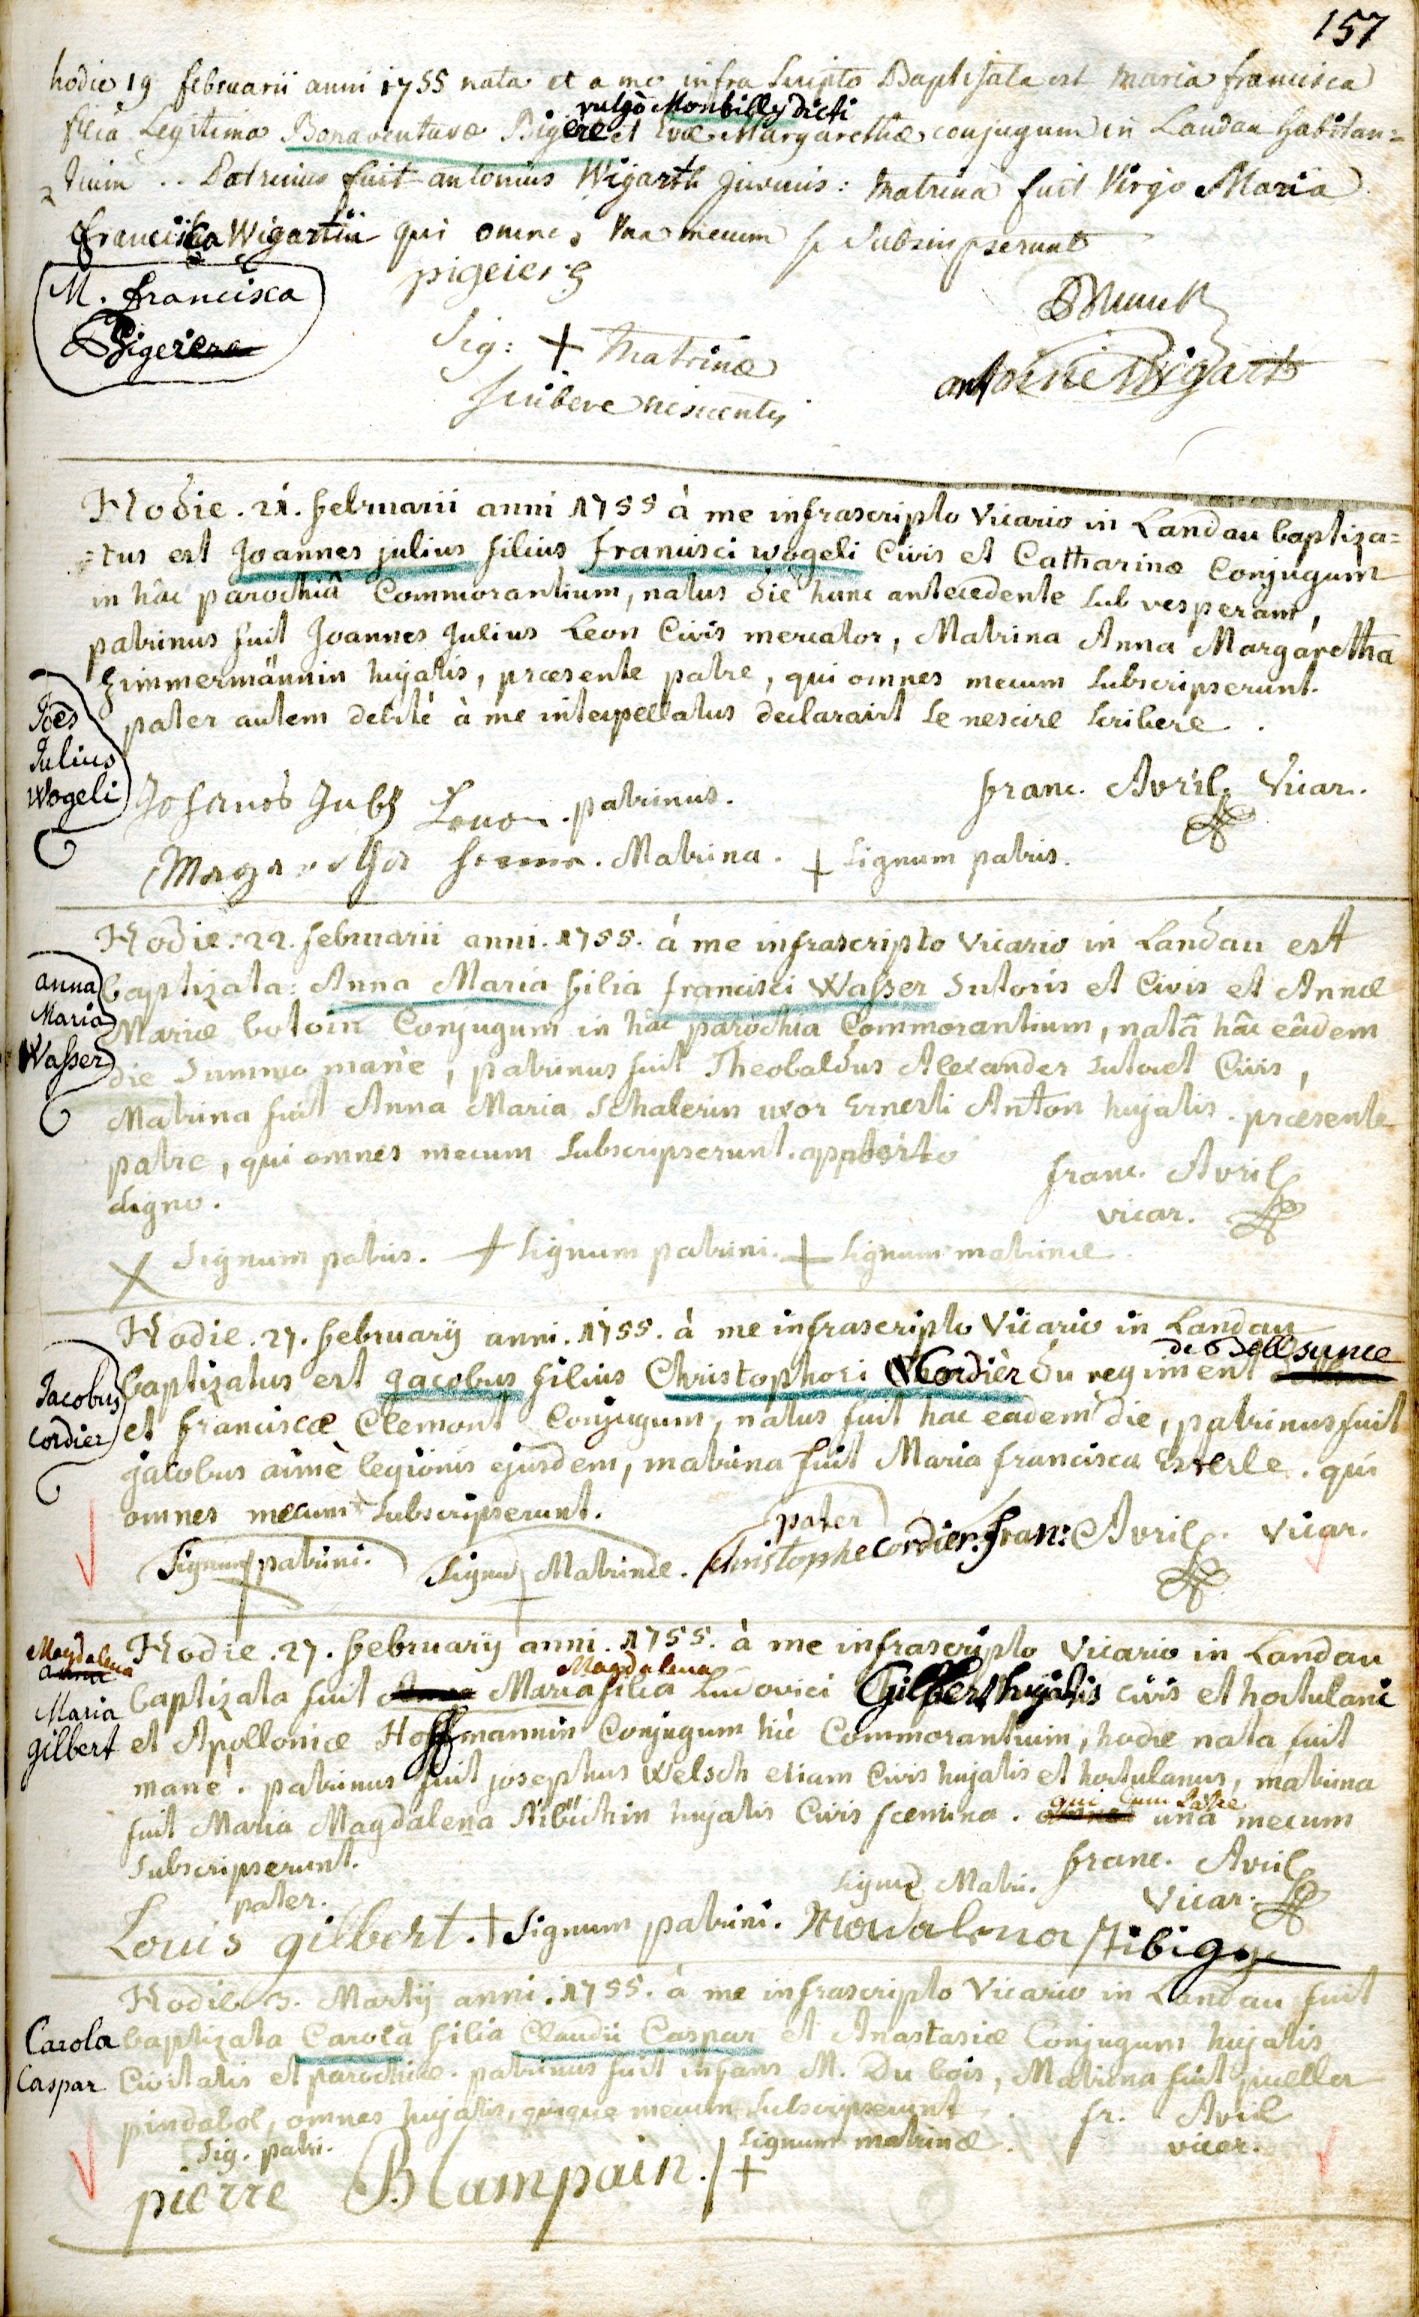 157
hodie 19 februarii anni 1755 nata et a me infra scripto Baptisata est Maria francisca
vulgò Monbilly dicti
filia Legitima Bonaventuræ Bigere et Evæ Margarethæ conjugum in Landau habitan=
tium .. Patrinus fuit antonius Wigarth juvenis: matrina fuit Virgo Maria
Francisca Wigartin qui omnes una mecum se subscripserunt
M. francisca
Bigeiere
pigeiere
Sig: + Matrinæ
scribere nescientis
antoine Wigart
Hodie . 21. februarii anni 1755 à me infrascripto Vicario in Landau baptiza=
=tus est Joannes julius filius francisci wogeli Civis et Catharinæ Conjugum
in hâc parochiâ Commorantium, natus die hunc antecedente sub vesperam,
patrinus fuit Joannes Julius Leon Civis mercator, Matrina Anna Margaretha
Zimmermännin hujatis, præsente patre, qui omnes mecum subscripserunt.
pater autem debite à me interpellatus declaravit se nescire scribere .
Joes
Julius
Wogeli
patrinus.
franc. Avril Vicar.
Matrina. + signum patris.
Hodie . 22. februarii anni . 1755. à me infrascripto Vicario in Landau est
baptizata: Anna Maria filia francisci Wasser Sutoris et Civis et Annæ
Mariæ botoin Conjugum in hâc parochia Commorantium, nata hâc eâdem
die summo manè, patrinus fuit Theobaldus Alexander sutor et Civis,
Matrina fuit Anna Maria Schalerin uxor Ernesti Anton hujatis . præsente
patre, qui omnes mecum subscripserunt. apposito
signo.
anna
Maria
Wasser
franc. Avril
vicar.
X Signum patris. + signum patrini. + signum matrinæ.
Hodie . 27. february anni . 1755. à me infrascripto Vicario in Landau
de Bellsunce
baptizatus est jacobus filius Christophori Cordièr du regiment
et franciscæ Clemont Conjugum, natus fuit hac eâdem die, patrinus fuit
jacobus aimè legionis ejusdem, matrina fuit Maria francisca Esterle . qui
omnes mecum subscripserunt.
Jacobus
Cordier
Signum patrini.
Signum Matrinæ.
pater
christophe cordier. fran: Avril. Vicar.
Hodie . 27. february anni . 1755. à me infrascripto Vicario in Landau
Magdalena
baptizata fuit Maria filia Ludovici Gilbert hujatis civis et hortulani
et Apolloniæ Hoffmannin Conjugum hìc Commorantium, hodie nata fuit
mane . patrinus fuit josephus Welsch etiam Civis hujatis et hortulanus, matrina
qui cum Patre
fuit Maria Magdalena Stibichin hujatis Civis foemina . unà mecum
subscripserunt.
Magdalena
anna
Maria
gilbert
franc. Avril
Vicar.
pater.
Louis gilbert. + Signum patrini.
signũ Matri.
Madalena Stibige
Hodie 3. Martij anni . 1755. à me infrascripto Vicario in Landau fuit
baptizata Carola filia Claudii Caspar et Anastasiæ Conjugum hujatis
Civitatis et parochiæ. patrinus fuit infans M. Du bois, Matrina fuit puella
pindabol, omnes hujatis, quique mecum subscripserunt .
Carola
Caspar
fr. Avril
vicar.
Sig. patri.
pierre Blampain.
Signum matrinæ.
+